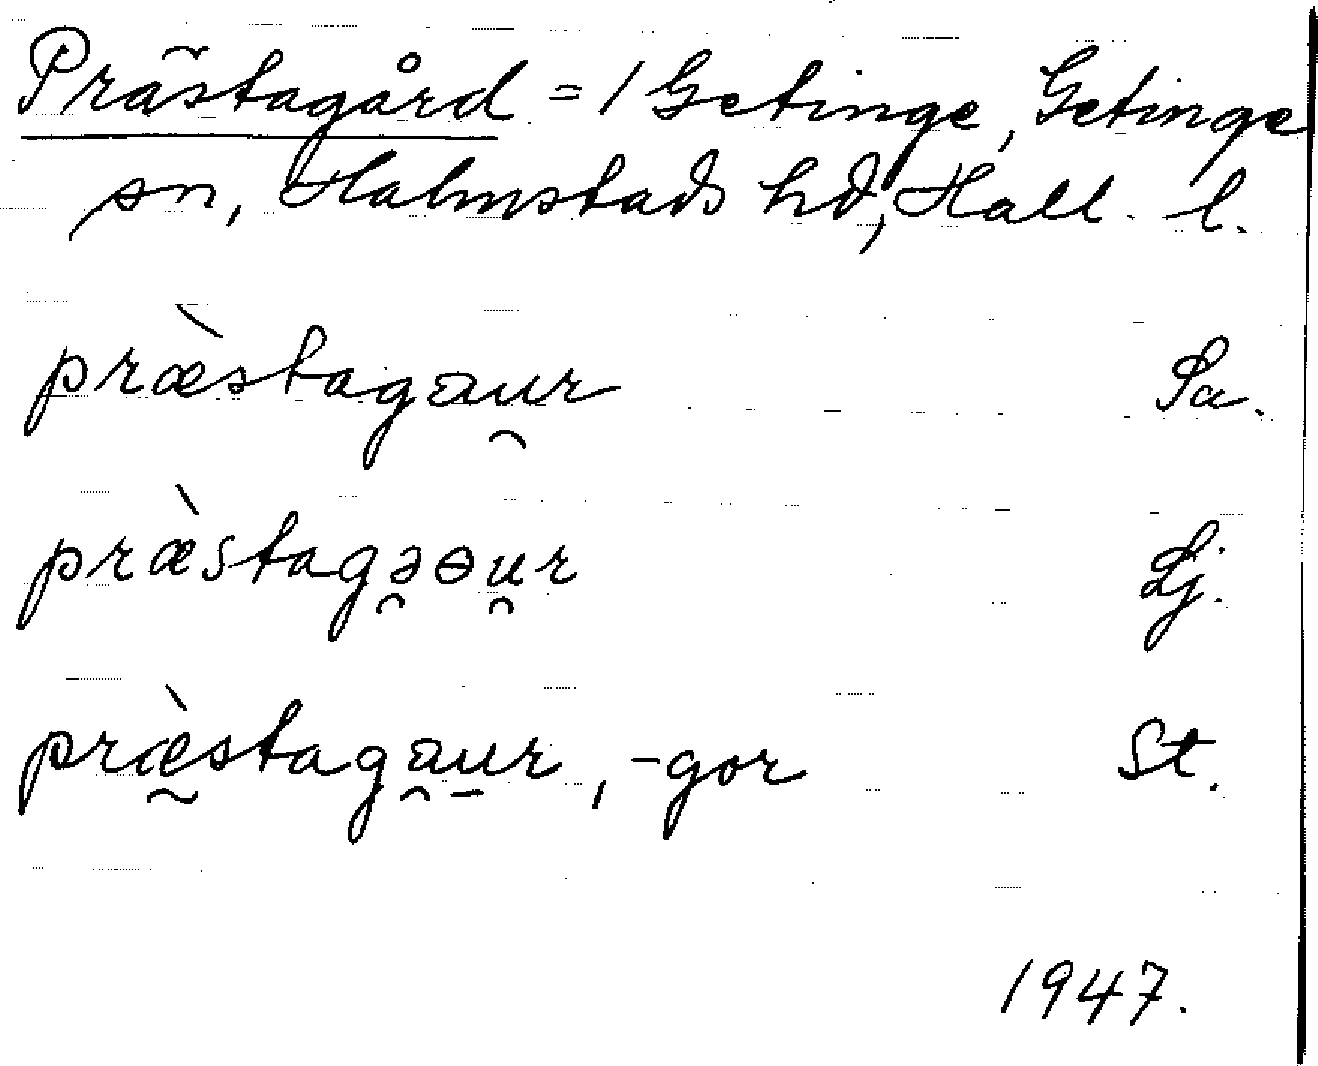 Prästagård = 1 Getinge, Getinge
sn, Halmstads hd, Hall. l.
præ̀stagau̯r Sa.
præ̀stagə̯ɵu̯r Lj.
præ̀stagaur, -gor St.
1947.